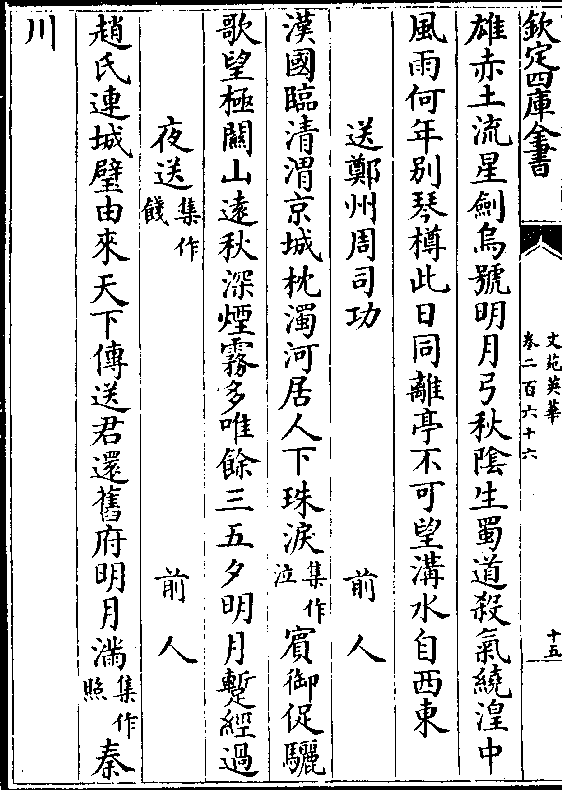 欽定四庫全書
文苑英華
卷二百六十六
十五
雄赤土流星劍烏號明月弓秋陰生蜀道殺氣繞湟中
風雨何年別琴樽此日同離亭不可望溝水自西東
送鄭州周司功 前人
漢國臨清渭京城枕濁河居人下珠淚集作泣賓御促驪
歌望極關山遠秋深煙霧多唯餘三五夕明月蹔經過
夜送集作餞 前人
趙氏連城璧由來天下傳送君還舊府明月滿集作照秦
川